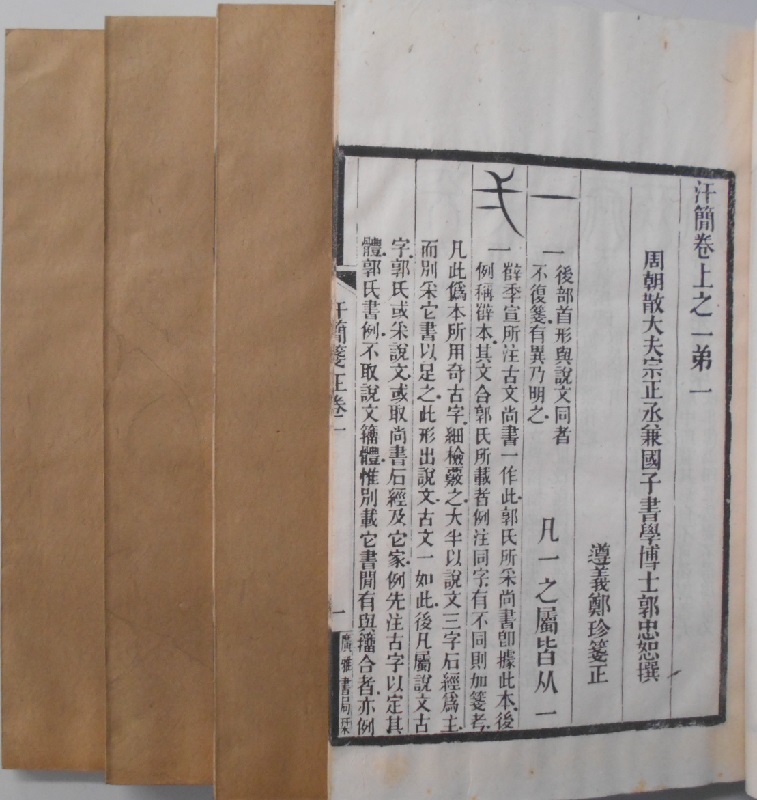 汗簡卷上之一弟一
周朝散大夫宗正丞兼國子書學博士郭忠恕撰
遵義鄭珍箋正
一 一 後部首形與說文同者
不復箋有異乃明之
凡一之屬皆从一
一 薛季宣所注古文尚書一作此郭氏所采尚書卽據此本後
例稱薛本其文合郭氏所載者例注同字有不同則加箋考
凡此僞本所用奇古字細檢覈之大半以說文三字石經爲主
而別采它書以足之此形出說文古文一如此後凡屬說文古
字郭氏或采說文或取尚書石經及它家例先注古字以定其
體郭氏書例不取說文籀體惟別載它書閒有與籀合者亦例
汗簡箋正卷一
一
廣雅書局栞